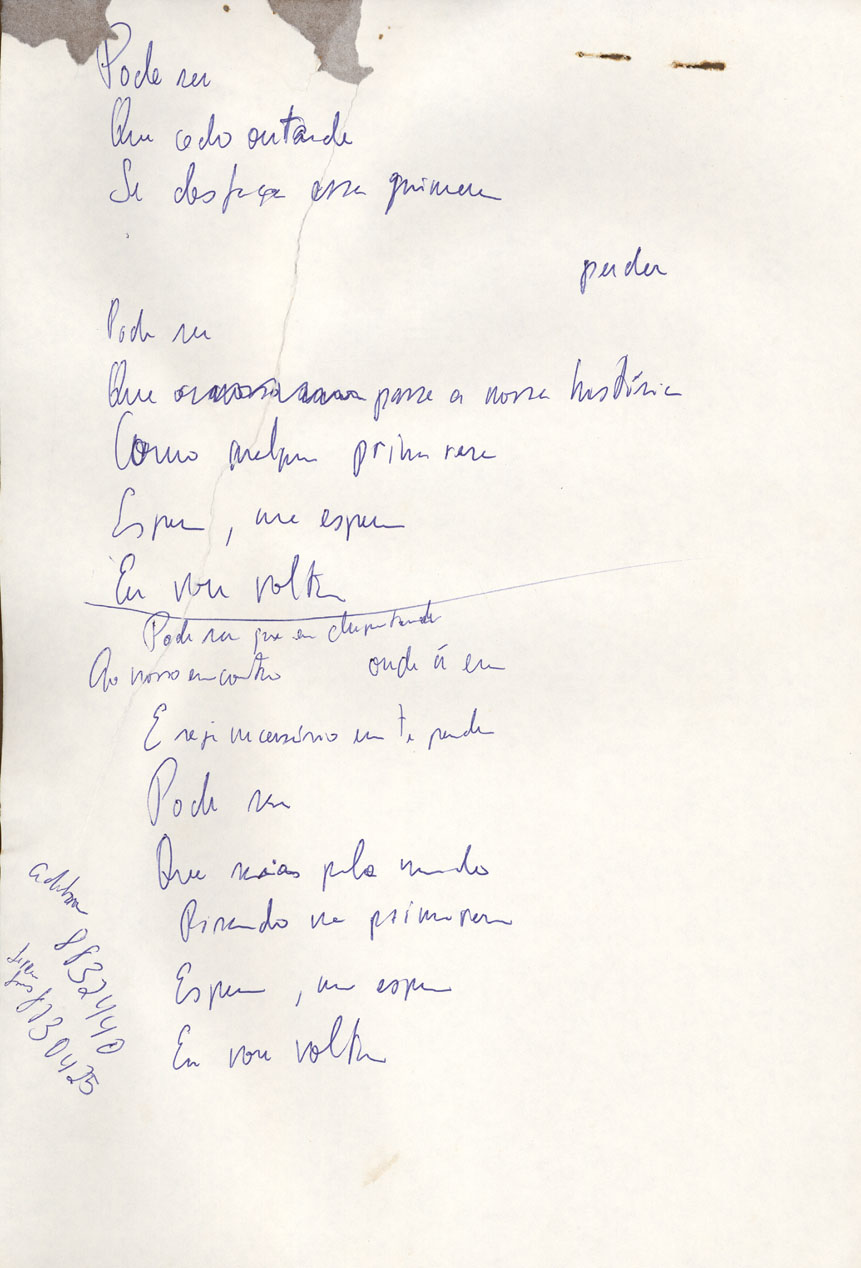 Pode ser
Que cedo ou tarde
Se desfaça essa quimera
perder
Pode ser
Que passe a nossa história
Como qualquer primavera
Espera, me espera
Eu vou voltar
Pode ser que eu chegue tarde
Ao nosso encontro onde é em
E seja necessário em te perder
Pode ser
Que saias pelo mundo
Pirando na primavera
Espera, me espera
Eu vou voltar
8832440
8230425